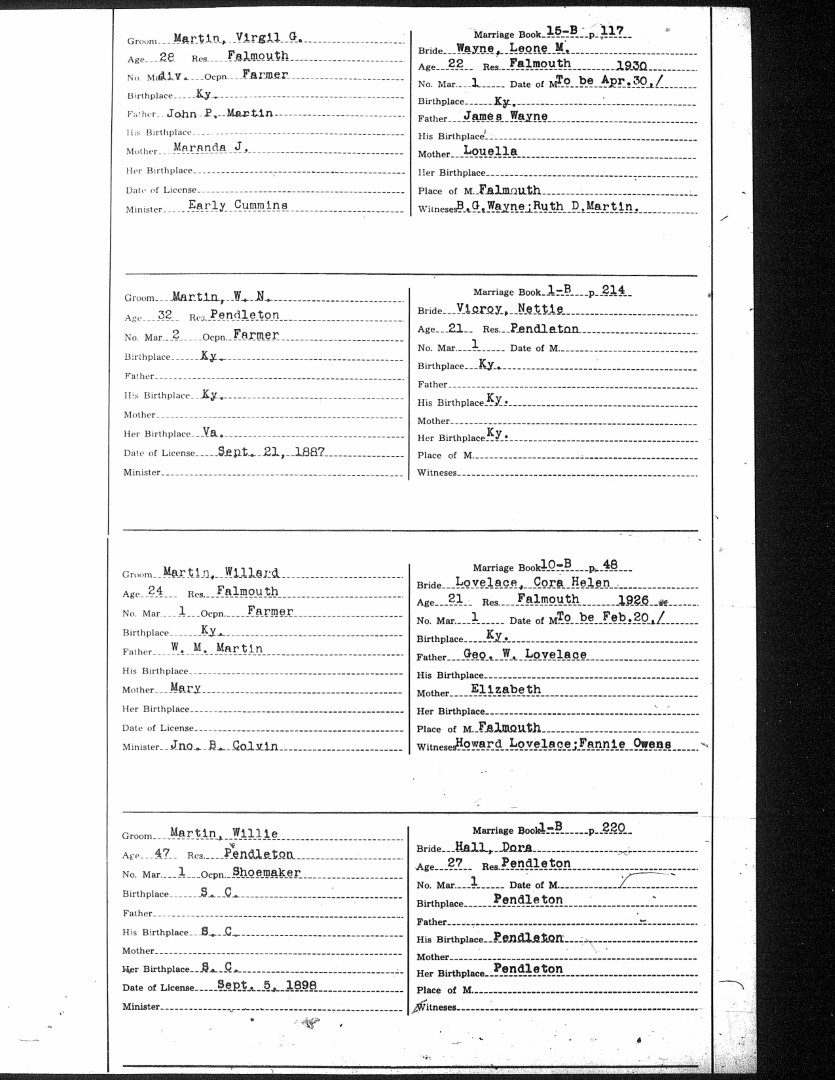 Groom Martin, Virgil G.
Age 28 Res. Falmouth
No. M div. Ocpn. Farmer
Birthplace Ky.
Father John P. Martin
His Birthplace
Mother Maranda J.
Her Birthplace
Date of License
Minister Early Cummins
Marriage Book 15-B p. 117
Bride Wayne, Leone M.
Age 22 Res. Falmouth 1930
No. Mar. 1 Date of M. To be Apr.30,/
Birthplace Ky.
Father James Wayne
His Birthplace
Mother Louella
Her Birthplace
Place of M. Falmouth
Witnesses B.G.Wayne;Ruth D.Martin.
Groom Martin, W. N.
Age 32 Res. Pendleton
No. Mar. 2 Ocpn. Farmer
Birthplace Ky.
Father
His Birthplace Ky.
Mother
Her Birthplace Va.
Date of License Sept. 21, 1887
Minister
Marriage Book 1-B p. 214
Bride Vicroy, Nettie
Age 21 Res. Pendleton
No. Mar. 1 Date of M.
Birthplace Ky.
Father
His Birthplace Ky.
Mother
Her Birthplace Ky.
Place of M.
Witnesses
Groom Martin, Willard
Age 24 Res. Falmouth
No. Mar. 1 Ocpn. Farmer
Birthplace Ky.
Father W. M. Martin
His Birthplace
Mother Mary
Her Birthplace
Date of License
Minister Jno. B. Colvin
Marriage Book 10-B p. 48
Bride Lovelace, Cora Helen
Age 21 Res. Falmouth 1926
No. Mar. 1 Date of M. To be Feb.20,/
Birthplace Ky.
Father Geo. W. Lovelace
His Birthplace
Mother Elizabeth
Her Birthplace
Place of M. Falmouth
Witnesses Howard Lovelace;Fannie Owens
Groom Martin, Willie
Age 47 Res. Pendleton
No. Mar. 1 Ocpn. Shoemaker
Birthplace S. C.
Father
His Birthplace S. C.
Mother
Her Birthplace S. C.
Date of License Sept. 5, 1898
Minister
Marriage Book 1-B p. 220
Bride Hall, Dora
Age 27 Res. Pendleton
No. Mar. 1 Date of M.
Birthplace Pendleton
Father
His Birthplace Pendleton
Mother
Her Birthplace Pendleton
Place of M.
Witnesses